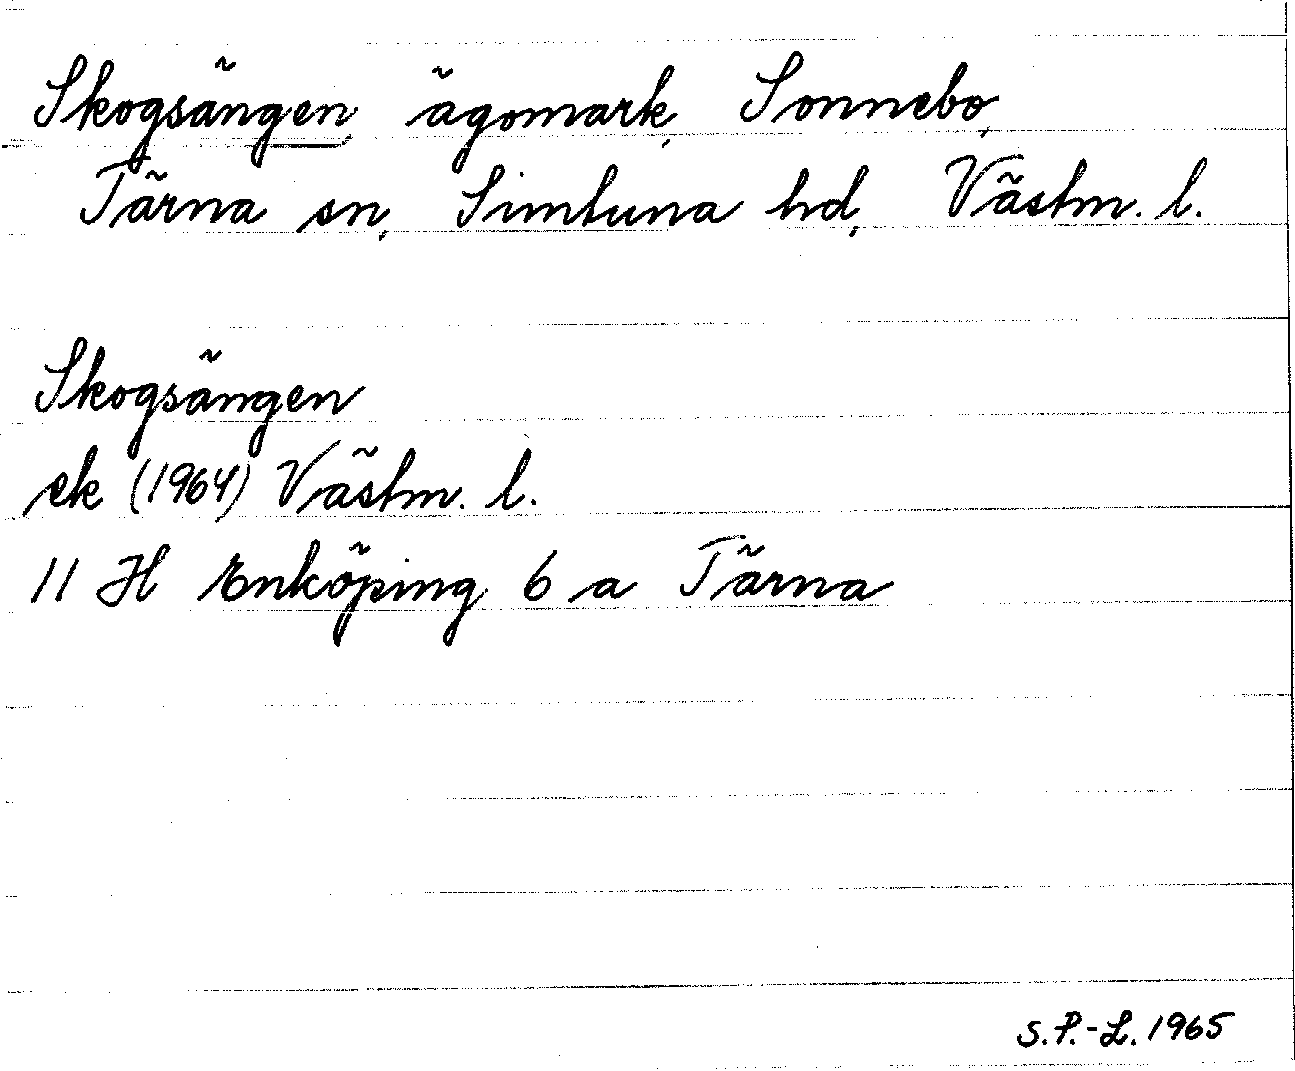 Skogsängen, ägomark, Sonnebo,
Tärna sn, Simtuna hd, Västm. l.
Skogsängen
ek (1964) Västm. l.
11 H Enköping 6 a Tärna
S. P.-L. 1965